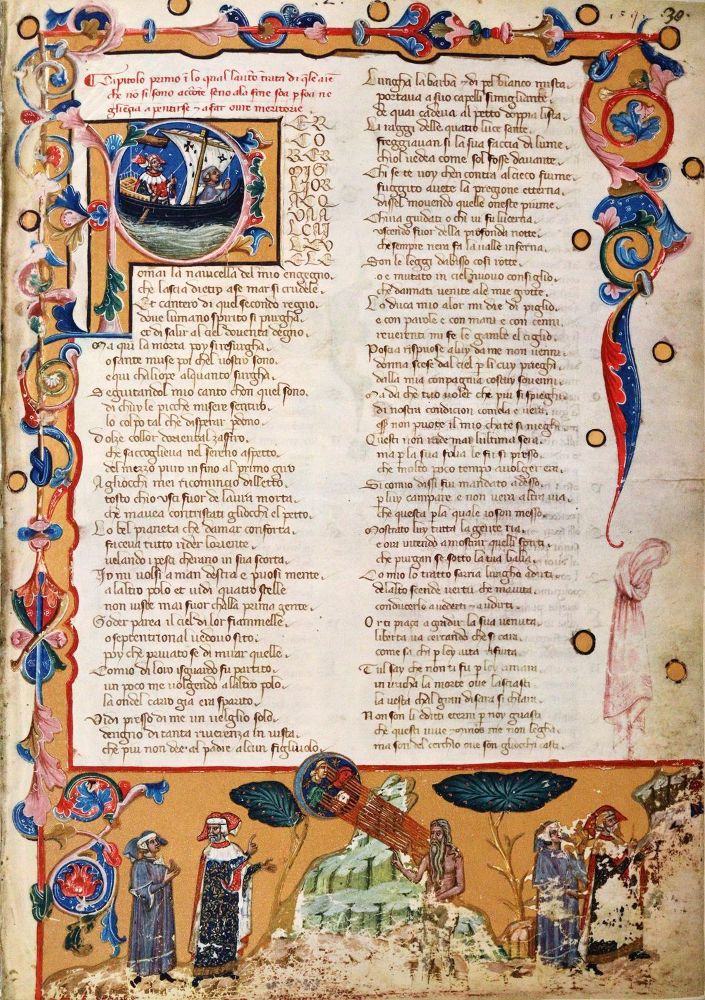 Capitolo primo i lo qual lauto trata di qle aie
che no si sono accote seno ala fine
gliegia a pentirse & a far ovre meritorie
PER
CO
RER
MIG
LIOR
ACQ
VA
ALCA
LE V
ELE
omai la navicella del mio engegno.
che lascia dietro a se mar si crudele.
Et cantero di quel secondo regno.
dove lumano spirito si purgha.
et di salir al ciel doventa degno.
Ma qui la morta poy si resurgha.
o sante muse poi chel vostro sono.
e qui chaliope alquanto surgha.
Seguitandol mio canto chon quel sono.
di chuy le picche misere sentiro.
lo colpo tal che disperar perdono.
Dolze collor doriental zafiro.
che saccoglieva nel sereno aspetto.
del mezzo puro in fino al primo giro
A gliocchi mei ricomincio diletto.
tosto chio usci fuor de laura morta.
che mavea contristati gliocchi el petto.
Lo bel pianeta che damar conforta.
faceva tutto rider loriente.
velando i pesci cherano in sua scorta.
Jy mi volsi a man destra e puosi mente.
alaltro polo et vidi quatro stelle
non viste mai fuor challa prima gente.
Goder parea il ciel di lor fiammelle.
o septentrional vedovo sito.
poy che privato se di mirar quelle.
Comio di loro isguardo fu partito.
un poco me volgendo alaltro polo.
la ondel carro gia era sparito.
Vidi presso di me un veglio solo.
dengno di tanta riverenza in vista.
che piu non dee al padre alcun figliuolo.
30
Lungha la barba & di pel bianco mista.
portava a suo capelli simigliante.
de quai cadeva al petto doppia lista.
Li raggi delle quatro luce sante.
freggiavan si la sua faccia di lume.
chiol vedea come sol fosse davante.
Chi se te voy chen contra al cieco fiume
fuggito avete la pregione etterna.
dissel movendo quelle oneste piume.
Chi va guidati o chi vi fu lucerna.
uscendo fuor della profonda notte.
che sempre nera fa la valle inferna.
Son le leggi dabisso cosi rotte.
o e mutato in ciel nuovo consiglio.
che dannati venite ale mie grotte.
Lo duca mio alor mi die di piglio.
e con parole e con mani e con cenni.
reverenti mi fe le gambe el ciglio.
Poscia rispuose a luy da me non venni.
donna scese dal ciel per li cuy prieghi.
dalla mia compagnia costuy sovenni.
Ma da che tuo voler che piu si spieghi
di nostra condicion comela e vera.
non puote il mio che te si nieghi
Questi non vide mai lultima sera.
ma per la sua folia le fu si presso.
che molto poco tempo a volger era.
Si comio dissi fui mandato ad esso.
per luy campare e non vera altra via
che questa per la quale io son messo.
Mostrato o luy tutta la gente ria.
e ora intendo a mostrar quelli spirti.
che purgan se sotto la tua balia.
Comio lo tratto sarria lungha adirti.
delalto scende vertu che maiuta
conducerlo a vederti & a udirti.
Or ti piaça a gradir la sua venuta.
liberta va cercando che si cara.
come sa chi per ley vita rifiuta.
Tul say che non ti fu per ley amara
in uticha la morte ove lasciasti
la vesta chel gran di sara si chiara.
Non son li editti eterni per noy guasti
che questi vive & minos me non legha.
ma son del cerchio ove son gliocchi casti.